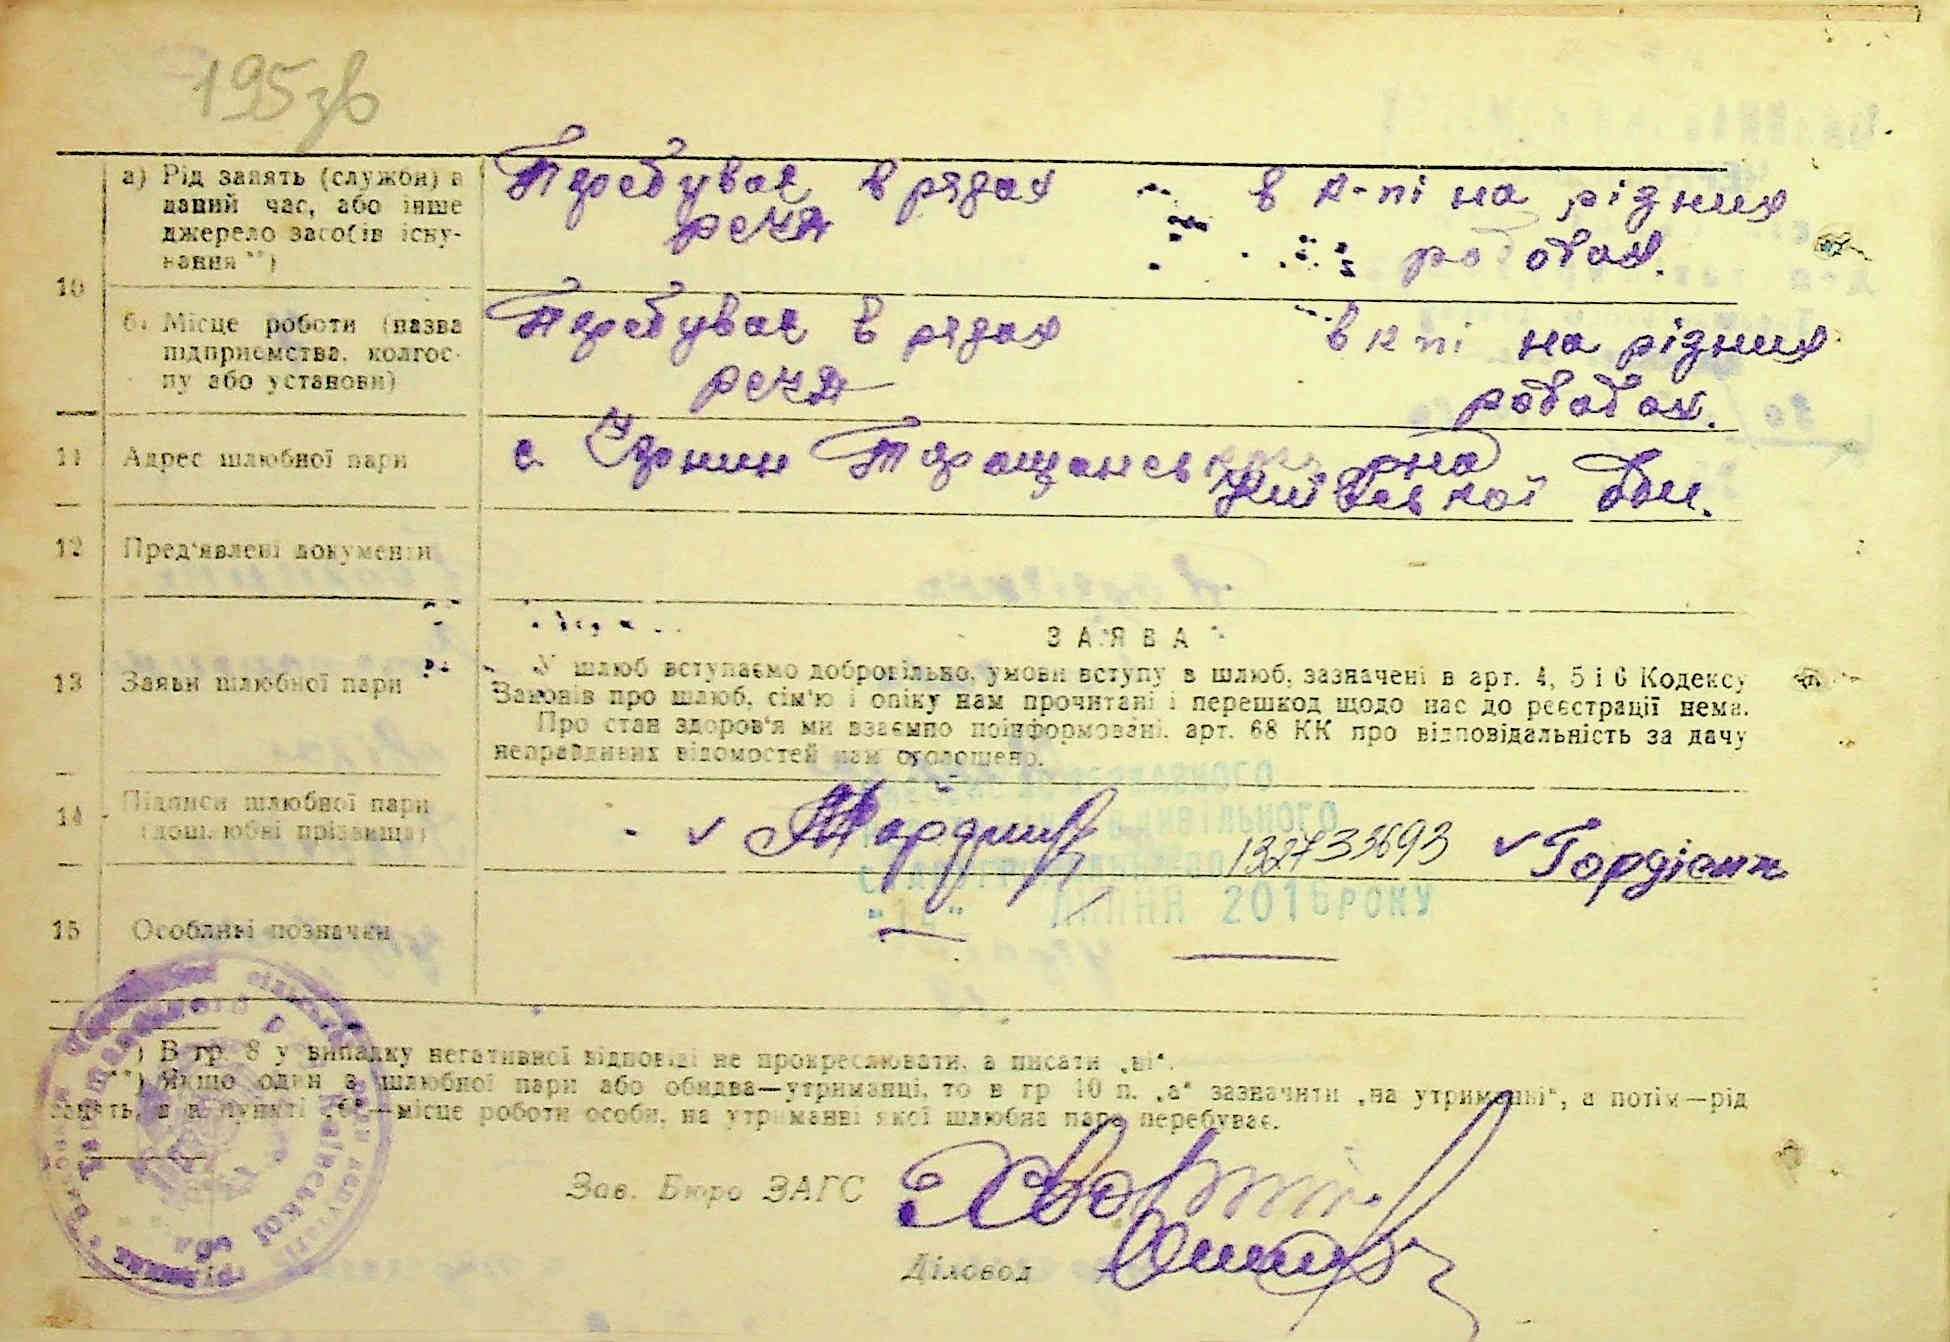 195зв
а) Рід занять (служби) в даний час, або інше джерело засобів існування **)
Перебуває в рядах
в к-пі на рідних
РСЧА
роботах.
10
б) Місце роботи (назва підприємства, колгоспу або установи)
Перебуває в рядах
в к пі на рідних
РСЧА
роботах.
11 Адрес шлюбної пари
с. Чернин Таращансь р-на
Київської обл.
12 Пред'явлені документи
ЗАЯВА
13 Заяви шлюбної пари
У шлюб вступаємо добровільно, умови вступу в шлюб, зазначені в арт. 4, 5 і 6 Кодексу
Законів про шлюб, сім'ю і опіку нам прочитані і перешкод щодо нас до реєстрації нема.
Про стан здоров'я ми взаємно поінформовані, арт. 68 КК про відповідальність за дачу
неправдивих відомостей нам оголошено.
14 Підписи шлюбної пари
(дошлюбні прізвища)
132733693
Гордієнк
ЛИПНЯ 2016 РОКУ
15 Особливі позначки
*) В гр. 8 у випадку негативної відповіді не прокреслювати, а писати „ні“.
**) Якщо один з шлюбної пари або обидва—утриманці, то в гр 10 п. „а“ зазначити „на утриманні“, а потім—рід
занять, а в пункті „б“—місце роботи особи, на утриманні якої шлюбна пара перебуває.
Зав. Бюро ЗАГС
Діловод